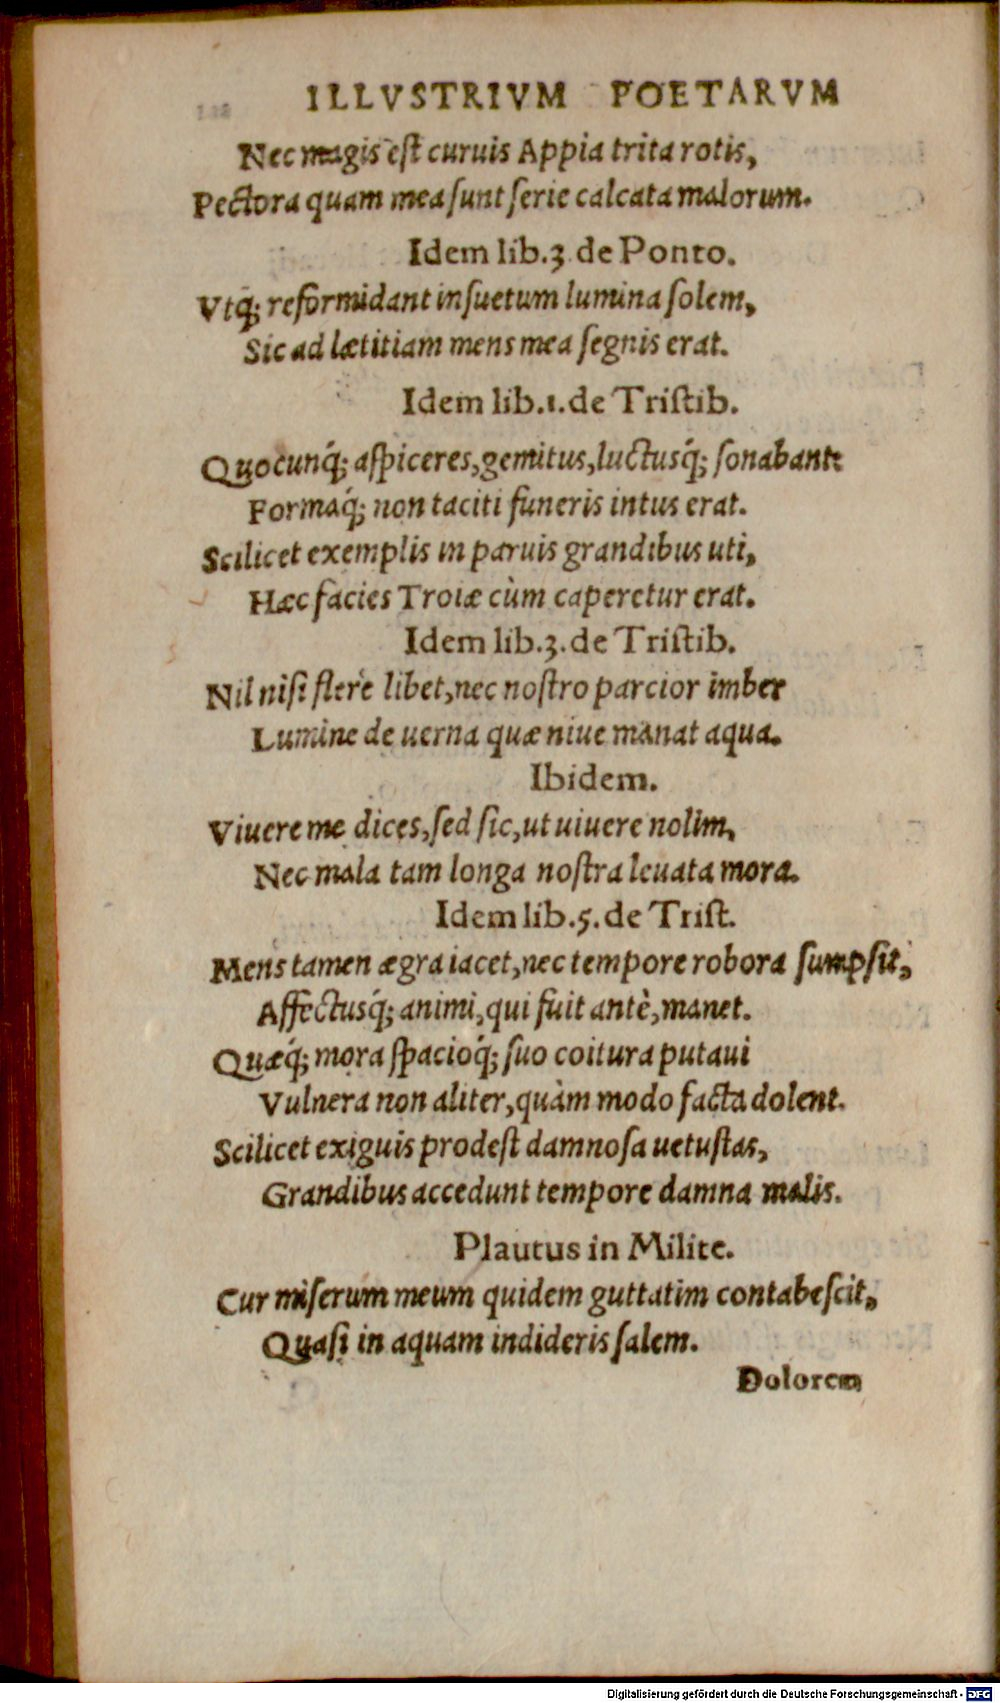 ILLVSTRIVM POETARVM
Nec magis est curuis Appia trita rotis,
Pectora quam mea sunt serie calcata malorum.
Idem lib.3 de Ponto.
Vtq; reformidant insuetum lumina solem,
Sic ad lætitiam mens mea segnis erat.
Idem lib.1.de Tristib.
Quocunq́; aspiceres,gemitus,luctusq́; sonabant:
Formaq́; non taciti funeris intus erat.
Scilicet exemplis in paruis grandibus uti,
Hæc facies Troiæ cùm caperetur erat.
Idem lib.3.de Tristib.
Nil nisi flere libet,nec nostro parcior imber
Lumine de uerna quæ niue manat aqua.
Ibidem.
Viuere me dices,sed sic,ut uiuere nolim,
Nec mala tam longa nostra leuata mora.
Idem lib.5.de Trist.
Mens tamen ægra iacet,nec tempore robora sumpsit,
Affectusq́; animi,qui fuit antè,manet.
Quæq́; mora spacioq́; suo coitura putaui
Vulnera non aliter,quàm modo facta dolent.
Scilicet exiguis prodest damnosa uetustas,
Grandibus accedunt tempore damna malis.
Plautus in Milite.
Cur miserum meum quidem guttatim contabescit,
Quasi in aquam indideris salem.
Dolorem
Digitalisierung gefördert durch die Deutsche Forschungsgemeinschaft - DFG